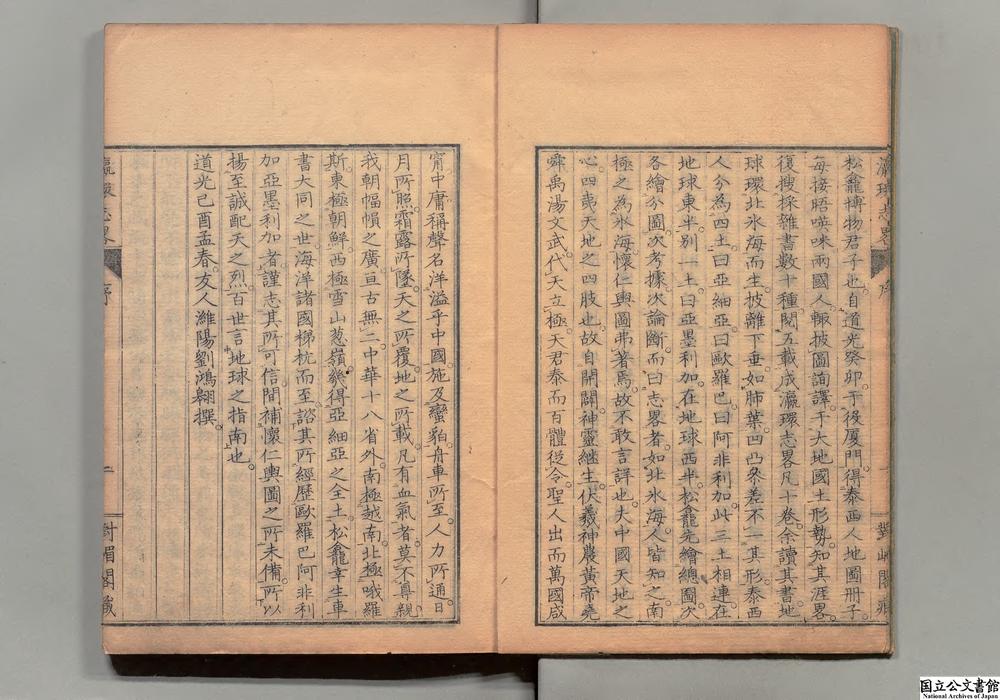 瀛環志畧
序
一
松龕博物君子也自道光癸卯于役厦門得泰西人地圖册子
每接晤㗲咪兩國人輙披圖詢譯于大地國土形勢知其涯畧
復搜採雜書數十種閱五載成瀛環志畧凡十卷余讀其書地
球環北氷海而生披離下垂如肺葉凹凸參差不一其形泰西
人分為四土曰亞細亞曰歐羅巴曰阿非利加此三土相連在
地球東半别一土曰亞墨利加在地球西半松龕先繪總圖次
各繪分圖次考據次論斷而曰志畧者如北氷海人皆知之南
極之為氷海懷仁輿圖弗著焉故不敢言詳也夫中國天地之
心四夷天地之四肢也故自開闢神靈繼生伏羲神農黄帝堯
舜禹湯文武代天立極天君泰而百體從令聖人出而萬國咸
甯中庸稱聲名洋溢乎中國施及蠻貊舟車所至人力所通日
月所照霜露所墜天之所覆地之所載凡有血氣者莫不尊親
我朝幅幀之廣亘古無二中華十八省外南極越南北極哦羅
斯東極朝鮮西極雪山蔥嶺幾得亞細亞之全土松龕幸生車
書大同之世海洋諸國梯杭而至諮其所經歷歐羅巴阿非利
加亞墨利加者謹志其所可信間補懷仁輿圖之所未備所以
揚至誠配天之烈百世言地球之指南也
道光己酉孟春友人濰陽劉鴻翱撰
瀛環志畧
序
對嵋閣藏
国立公文書館
National Archives of Japan